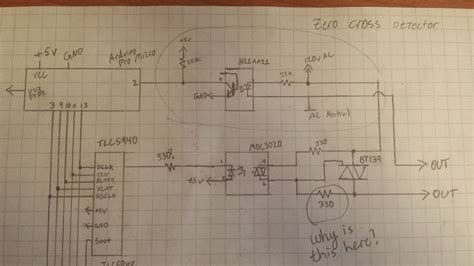 Zero Cross Detector
+5V
GND
Arduino Pro Micro
VCC
2
3 9 10 13
+5V
10K
GND
H11AA11
33K
120V AC
AC Neutral
TLC5940
SCLK
SIN
BLANK
XLAT
GSCLK
+5V
GND
SOUT
TLC5940
330
+5V
MOC3020
1
2
330
BT139
330
OUT
OUT
why is this here?